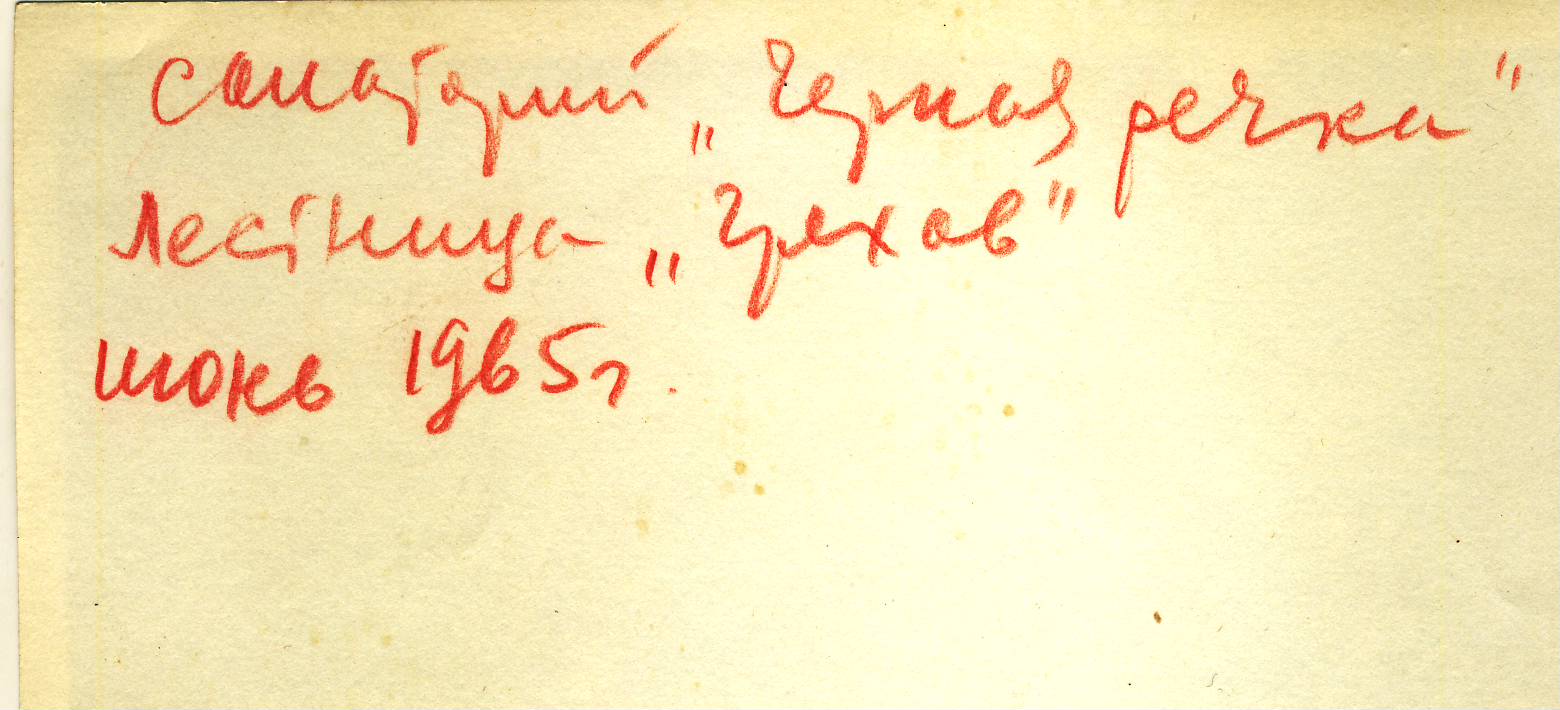 санаторий „Черная речка"
Лестница „Грехов"
июнь 1965г.